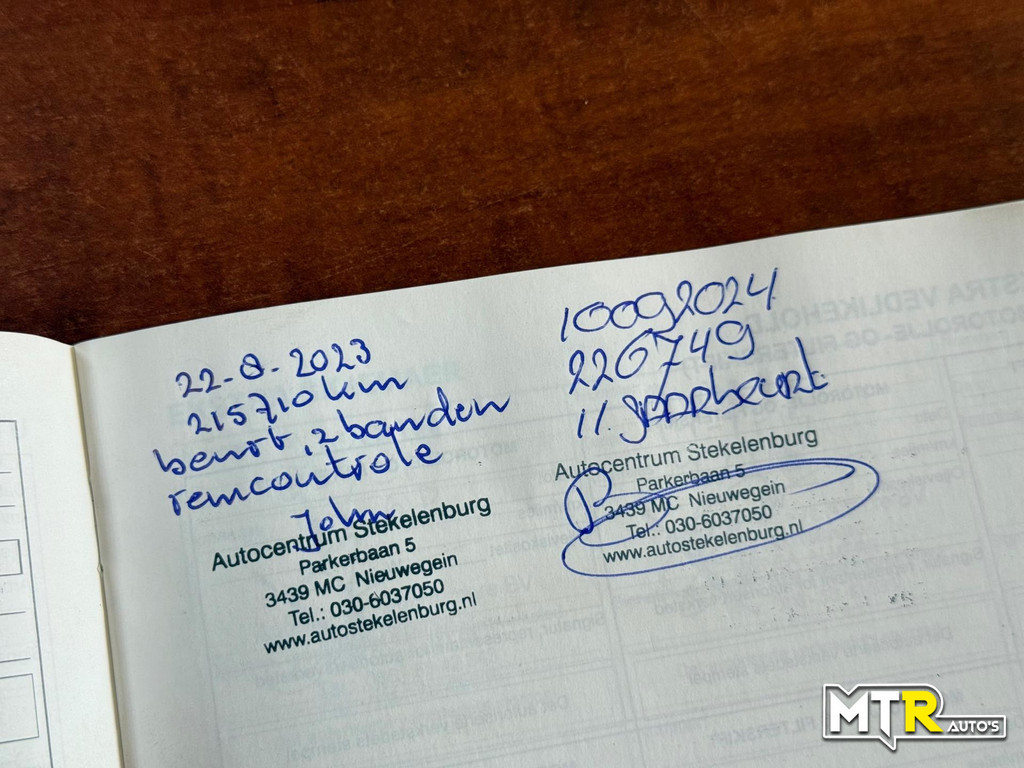 22-8-2023
215710 km
beurt, 2 banden
remcontrole
John
Autocentrum Stekelenburg
Parkerbaan 5
3439 MC Nieuwegein
Tel.: 030-6037050
www.autostekelenburg.nl
10092024
226749
11. JAARbeurt.
Autocentrum Stekelenburg
Parkerbaan 5
3439 MC Nieuwegein
Tel.: 030-6037050
www.autostekelenburg.nl
MTR AUTO'S